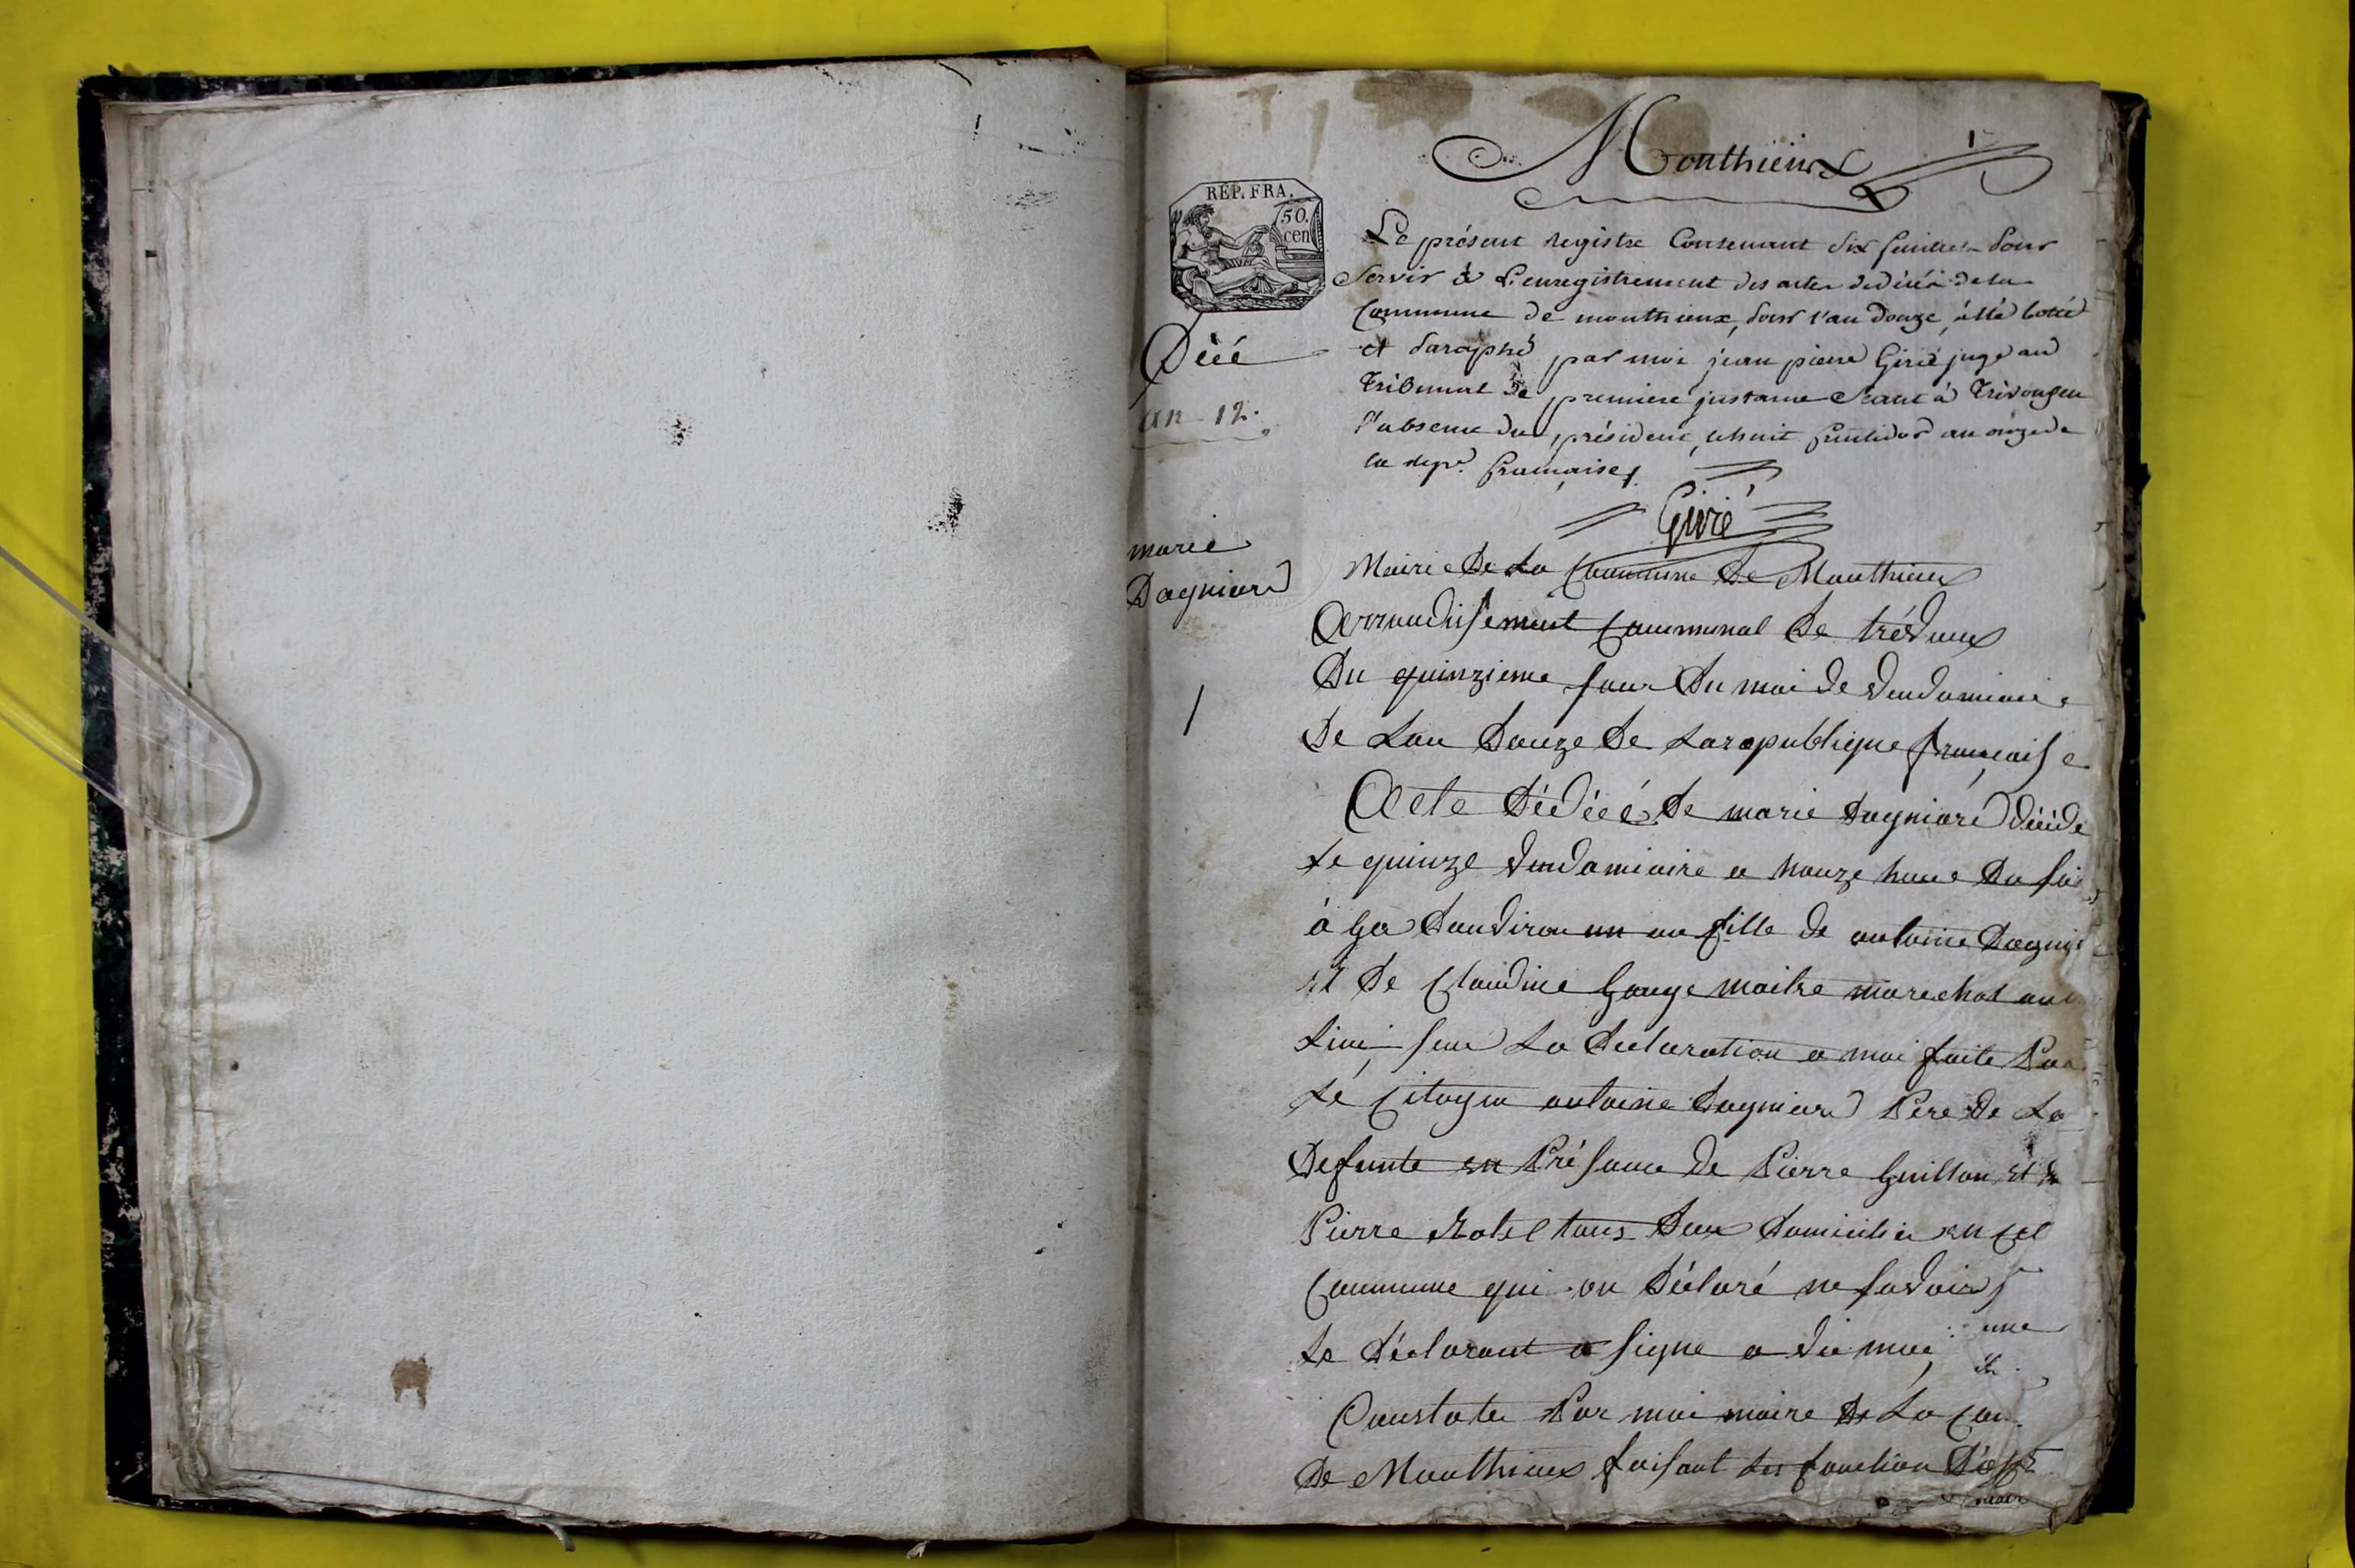 Monthieux
1
REP. FRA.
50.
cen
Le présent registre Contenant dix feuilles pour
Servir à L'enregistrement des actes de décès de la
Commune de monthieux, pour l'an douze, a été Cotté
et Paraphé par moi jean pierre Girié juge au
Tribunal de première instance Séant à Trévoux en
l'absence du président, le huit fructidor an onze de
la rep.e française
Girié
Décé
an - 12.
marie
Dagniere
1
Mairie De La Commune De Monthieux
Arrondisement Communal De trévoux
Du quinzieme Jour Du moi de vendemiaire
De Lan Douze De La republique françaisse
Acte Dédécé De marie Dagniare décédé
Le quinze vendamiaire a honze heure Du soi
à gé Danviron un an fille de antoine Dagni
et De Claudine Gouge maitre marechal au
Lieu, sur La Declaration a moi faite Par
Le Citoyen antoine Dagniere Pere De La
Defunte en Présance De Pierre Guillon et De
Pierre Rotel tous Deux Domicilié en cel
Commune qui on Déclaré ne savoir
Le Déclarant a signe a vec moi
Constater Par moi maire De La Com
De Monthieux faisant les fonction D'off